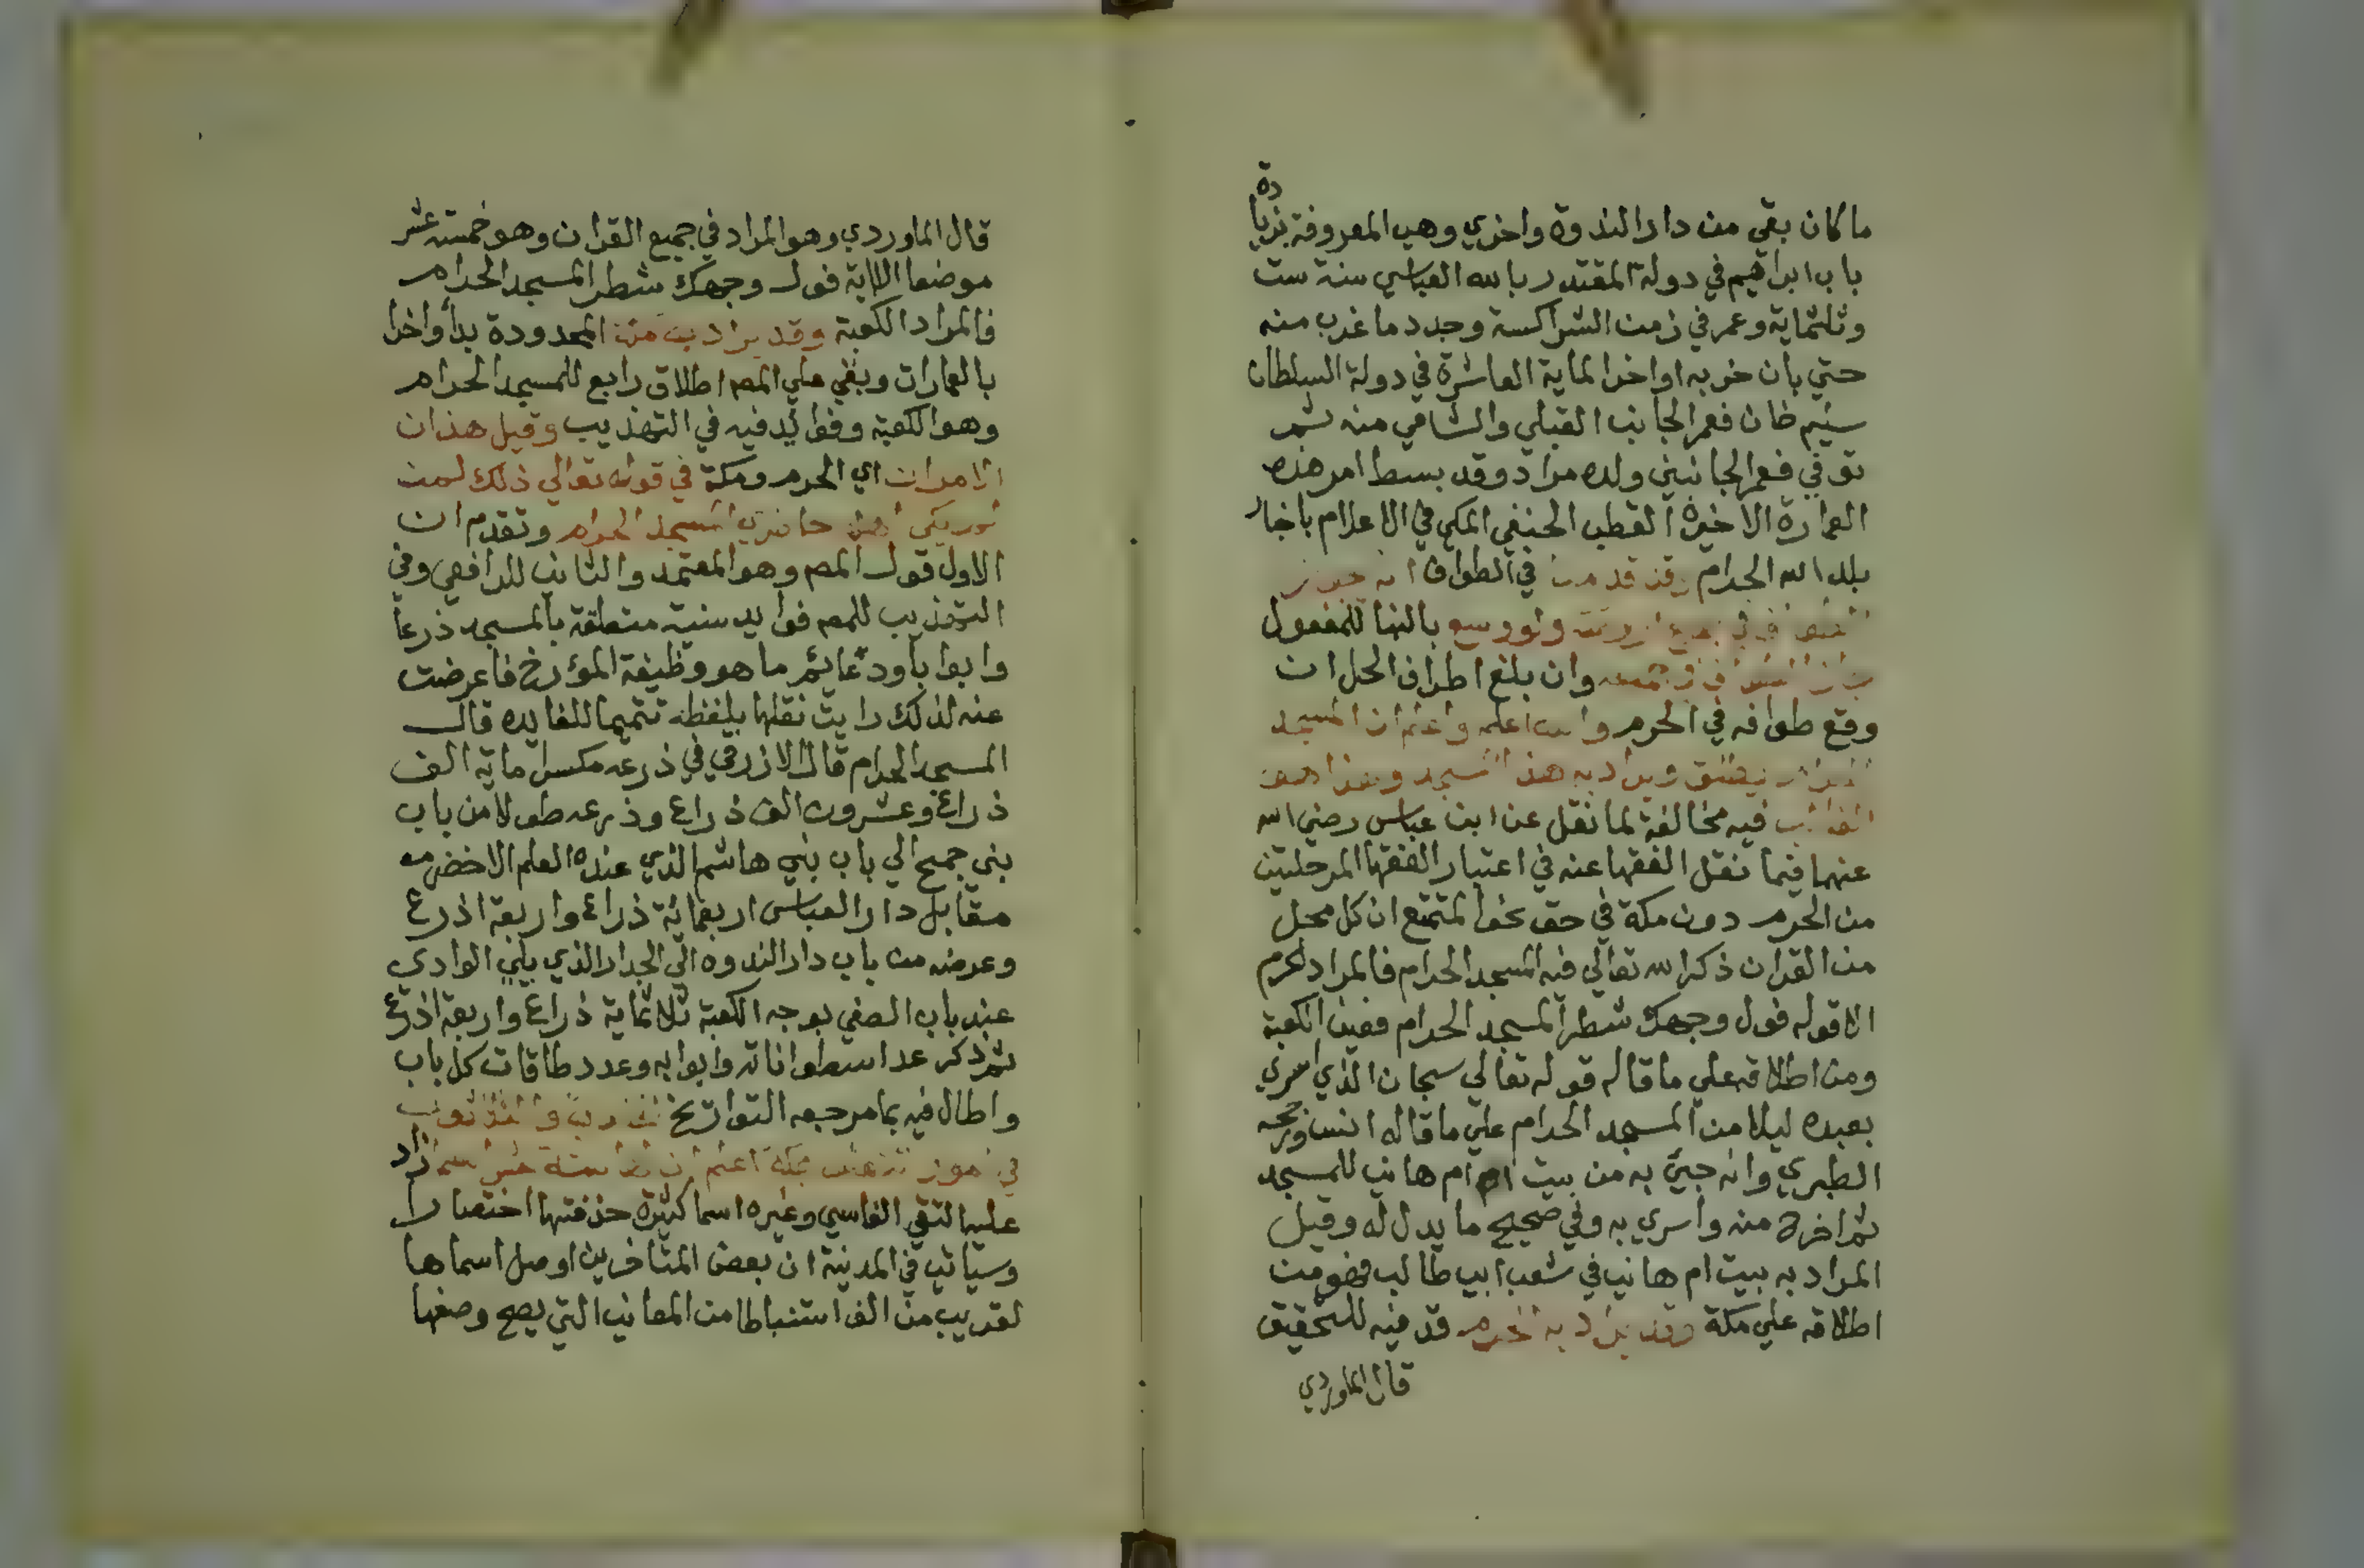 ما كان بقي من دار الندوة واخري وهي المعروفة بزيادة
باب ابراهيم في دولة المقتدر بالله العباسي سنة ست
وثلثماية وعمر في زمن الشراكسة وجدد ما خرب منه
حتي بان خربه اواخر الماية العاشرة في دولة السلطان
سليم خان فعمر الجانب القبلي والشامي منه ثم
توفي فعمر الجانبين ولده مراد وقد بسط امر هذه
العمارة الاخيرة القطب الحنفي المكي في الاعلام باخبار
بلد الله الحرام وقد قدمنا في الطواف انه يجوز
في ولو وسع بالبنا للمفعول
جاز الطواف في جميعه وان بلغ اطراف الحل ان
وقع طوافه في الحرم والله اعلم واعلم ان المسجد
الحرام يطلق ويراد به هذا المسجد وهذا هو
الغالب فيه مخالفة لما نقل عن ابن عباس رضي الله
عنهما فيما نقل الفقها عنه في اعتبار الفقها المرحلتين
من الحرم دون مكة في حق نحو المتمتع ان كل محل
من القران ذكر الله تعالي فيه المسجد الحرام فالمراد الحرم
الا قوله فول وجهك شطر المسجد الحرام فعين الكعبة
ومن اطلاقه علي ما قاله قوله تعالي سبحان الذي اسري
بعبده ليلا من المسجد الحرام علي ما قاله انس ورجحه
الطبري وانه جيئ به من بيت ام هاني للمسجد
ثم اخرج منه واسري به وفي صحيح ما يدل له وقيل
المراد به بيت ام هاني في شعب ابي طالب فهو من
اطلاقه علي مكة وقد يراد به الحرم قد فيه للتحقيق
قال الماوردي
قال الماوردي وهو المراد في جميع القران وهو خمسة عشر
موضعا الا اية فول وجهك شطر المسجد الحرام
فالمراد الكعبة وقد يراد به مكة المحدودة بدأ واخرا
بالعمارات وبقي علي المصـ اطلاق رابع للمسجد الحرام
وهو الكعبة وفوايد فيه في التهذيب وقيل هذان
الامران اي الحرم ومكة في قوله تعالي ذلك لمن
لم يكن اهله حاضري المسجد الحرام وتقدم ان
الاول قول المصـ وهو المعتمد والثاني للرافعي وفي
التهذيب للمصـ فوايد سنية متعلقة بالمسجد ذرعا
وابوابا ودعايم ما هو وظيفة المؤرخ فاعرضت
عنه لذلك رايت نقلها بلفظه تتميما للفايده قال
المسجد الحرام قال الازرقي في ذرعه مكسرا ماية الف
ذراع وعشرون الف ذراع وذرعه طولا من باب
بني جمح الي باب بني هاشم الذي عنده العلم الاخضر
مقابل دار العباس اربعمائة ذراع واربعة اذرع
وعرضه من باب دار الندوه الي الجدار الذي يلي الوادي
عند باب الصفي بوجه الكعبة ثلاثماية ذراع واربعة اذرع
ثم ذكر عد اسطواناته وابوابه وعدد طاقات كل باب
واطال فيه بما مرجعه التواريخ
في امور تتعلق بمكة اعلم ان لها ستة عشر اسما زاد
عليها التقي الفاسي وغيره اسما كثيرة حذفتها اختصارا
وسياتي في المدينة ان بعض المتاخرين اوصل اسماها
لقريب من الف استنباطا من المعاني التي يصح وصفها